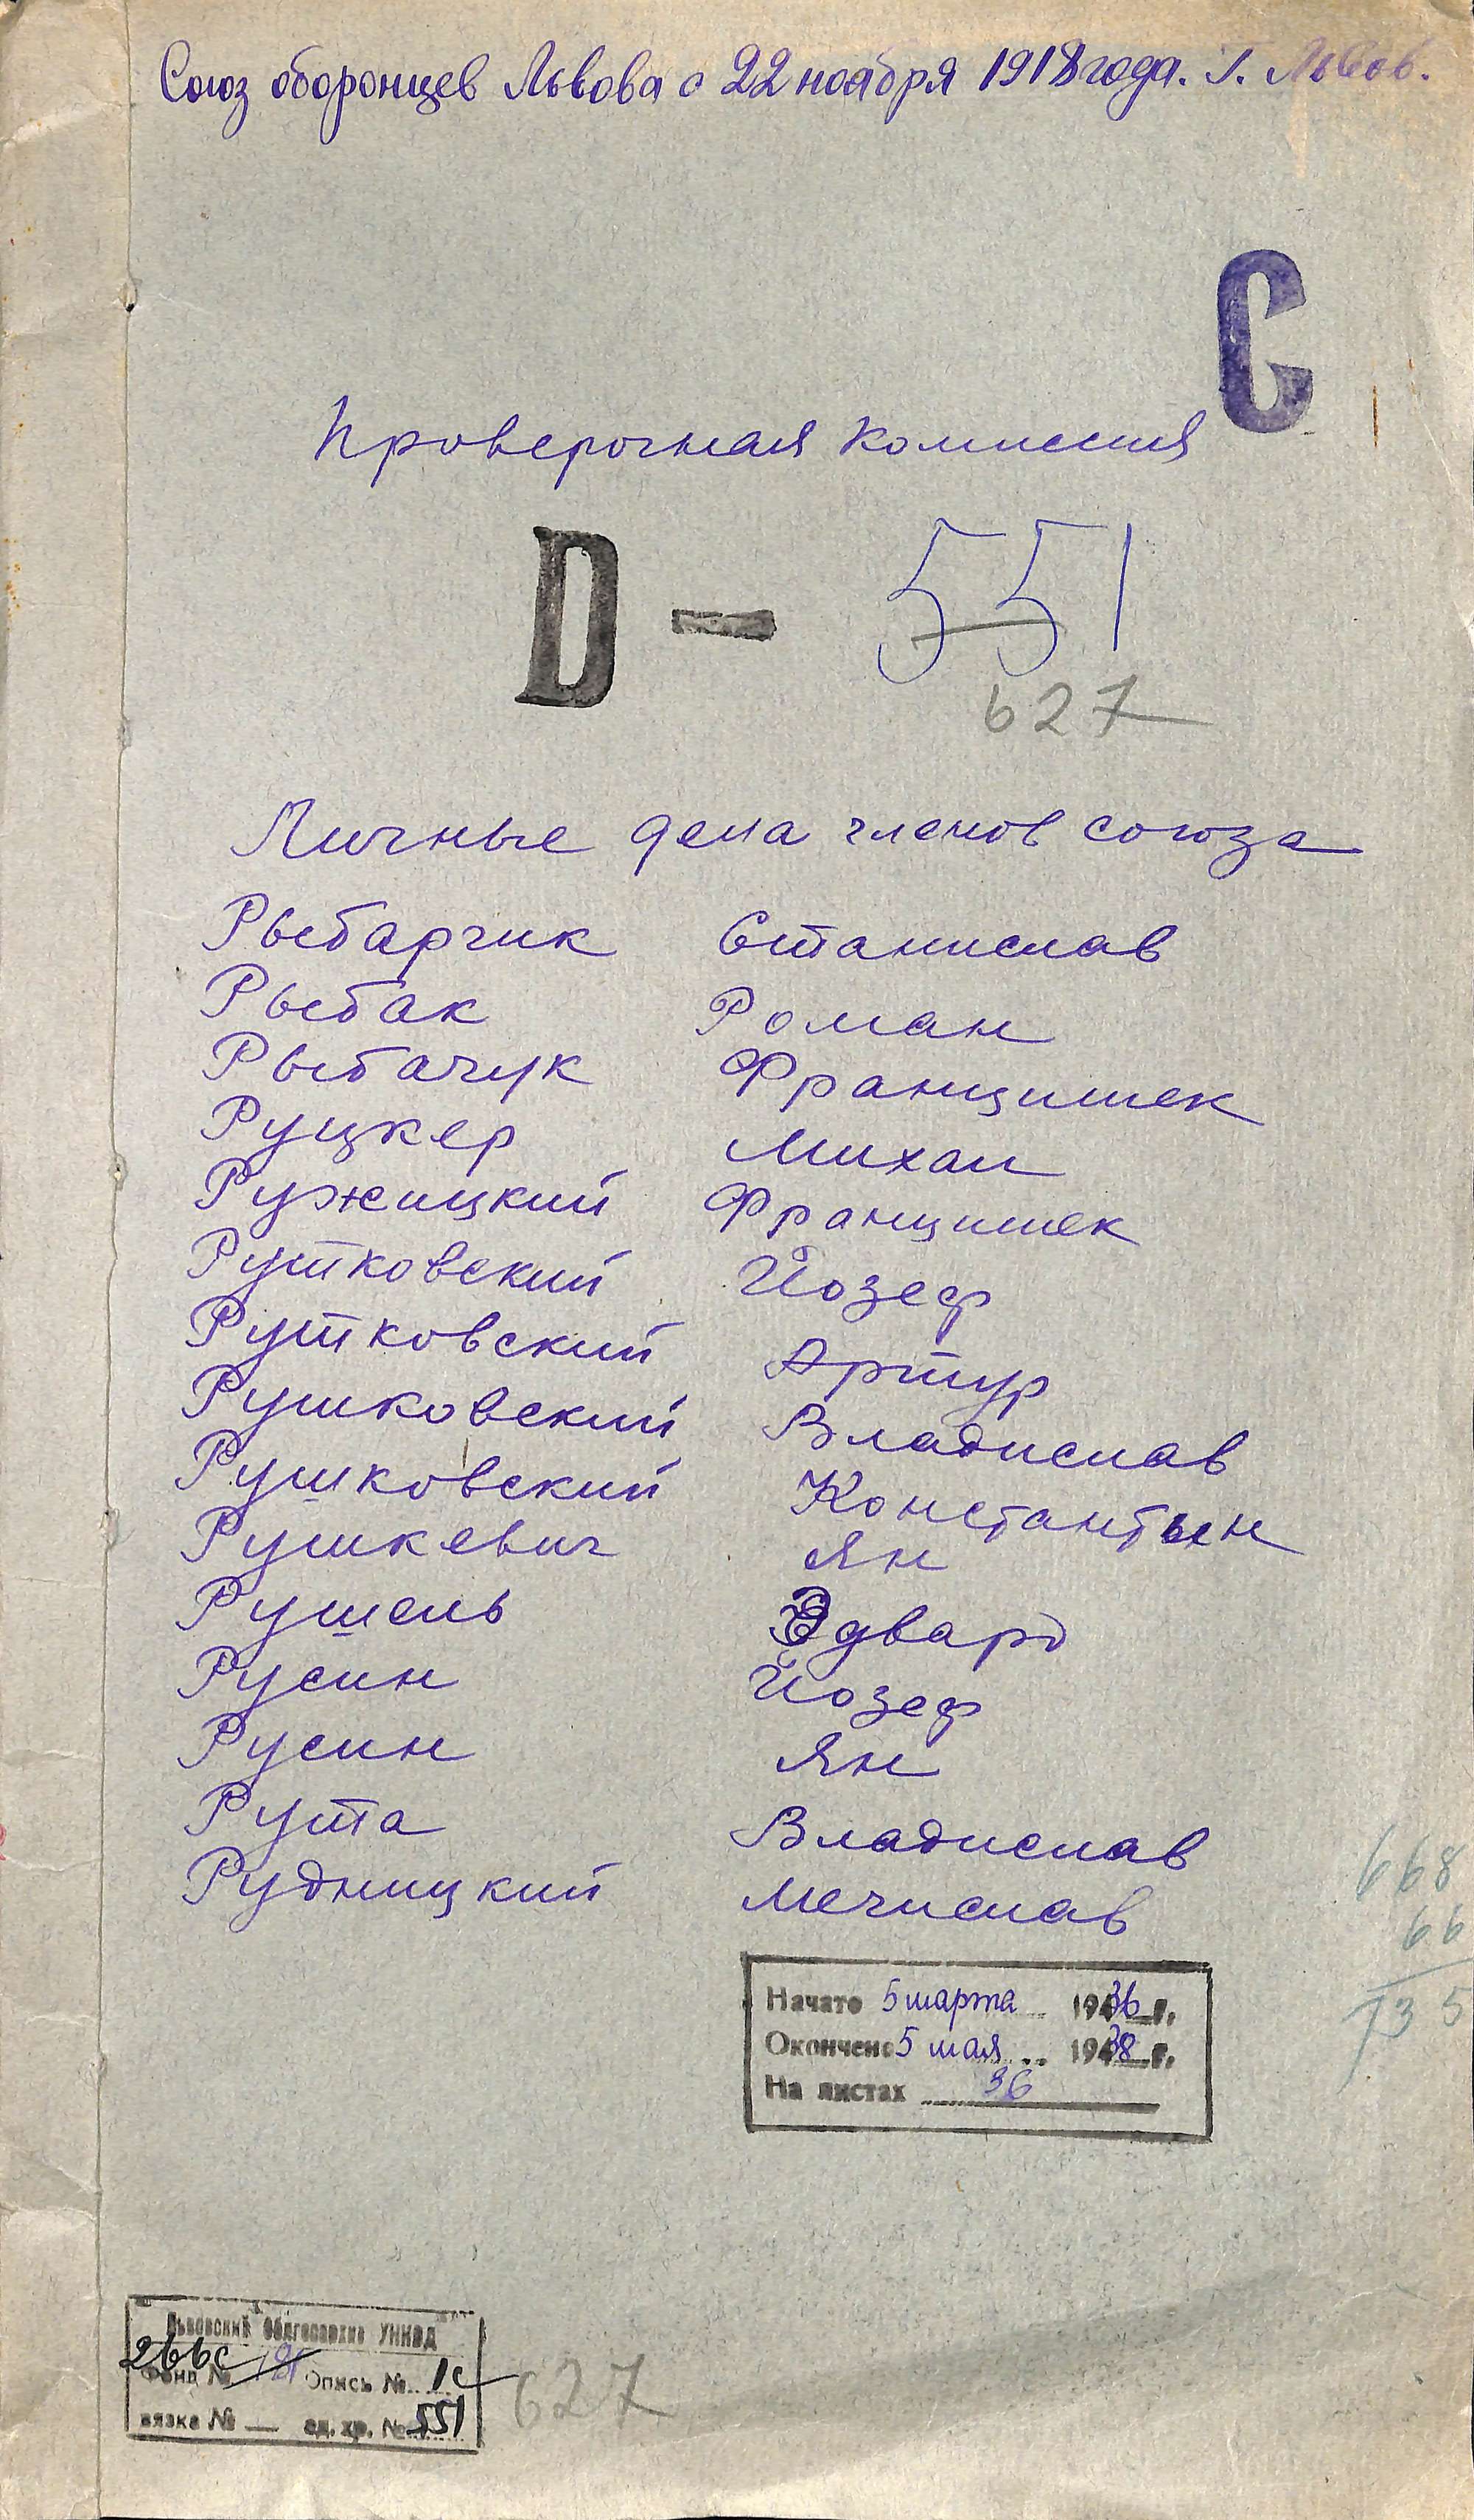 Союз оборонцев Львова с 22 ноября 1918 года. Г. Львов.
С
Проверочная комиссия
D – 551
627
Личные дела членов союза
Рыбарчик Станислав
Рыбак Роман
Рыбачук Францишек
Руцкер Михал
Ружицкий Францишек
Рутковский Йозеф
Рутковский Артур
Рушковский Владислав
Рушковский Константын
Рушкевич Ян
Рушель Эдвард
Русин Йозеф
Русин Ян
Рута Владислав
Рудницкий Мечислав
668
66
735
Начато 5 марта 1936 г.
Окончено 5 мая 1938 г.
На листах 36
Львовский Облгосархив УНКВД
266с
Фонд № Опись № 1с
вязка № — ед. хр. № 551
627